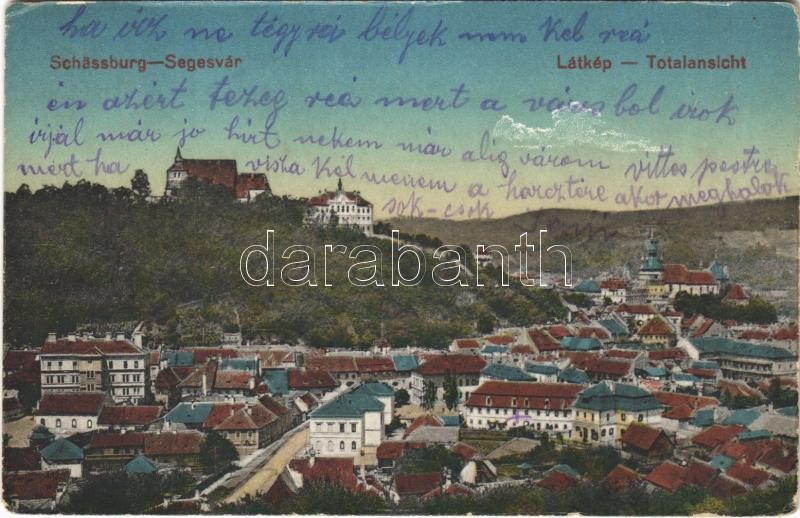 ha irz ne tégy rá bélyek nem kel reá
Schässburg—Segesvár
Látkép — Totalansicht
én azért tezeg reá mert a városbol irok
irjál már jo hirt nekem már alig várom vittos pestre
mert ha viska kel menem a harctére akor meghalok
sok-csok
darabanth.com